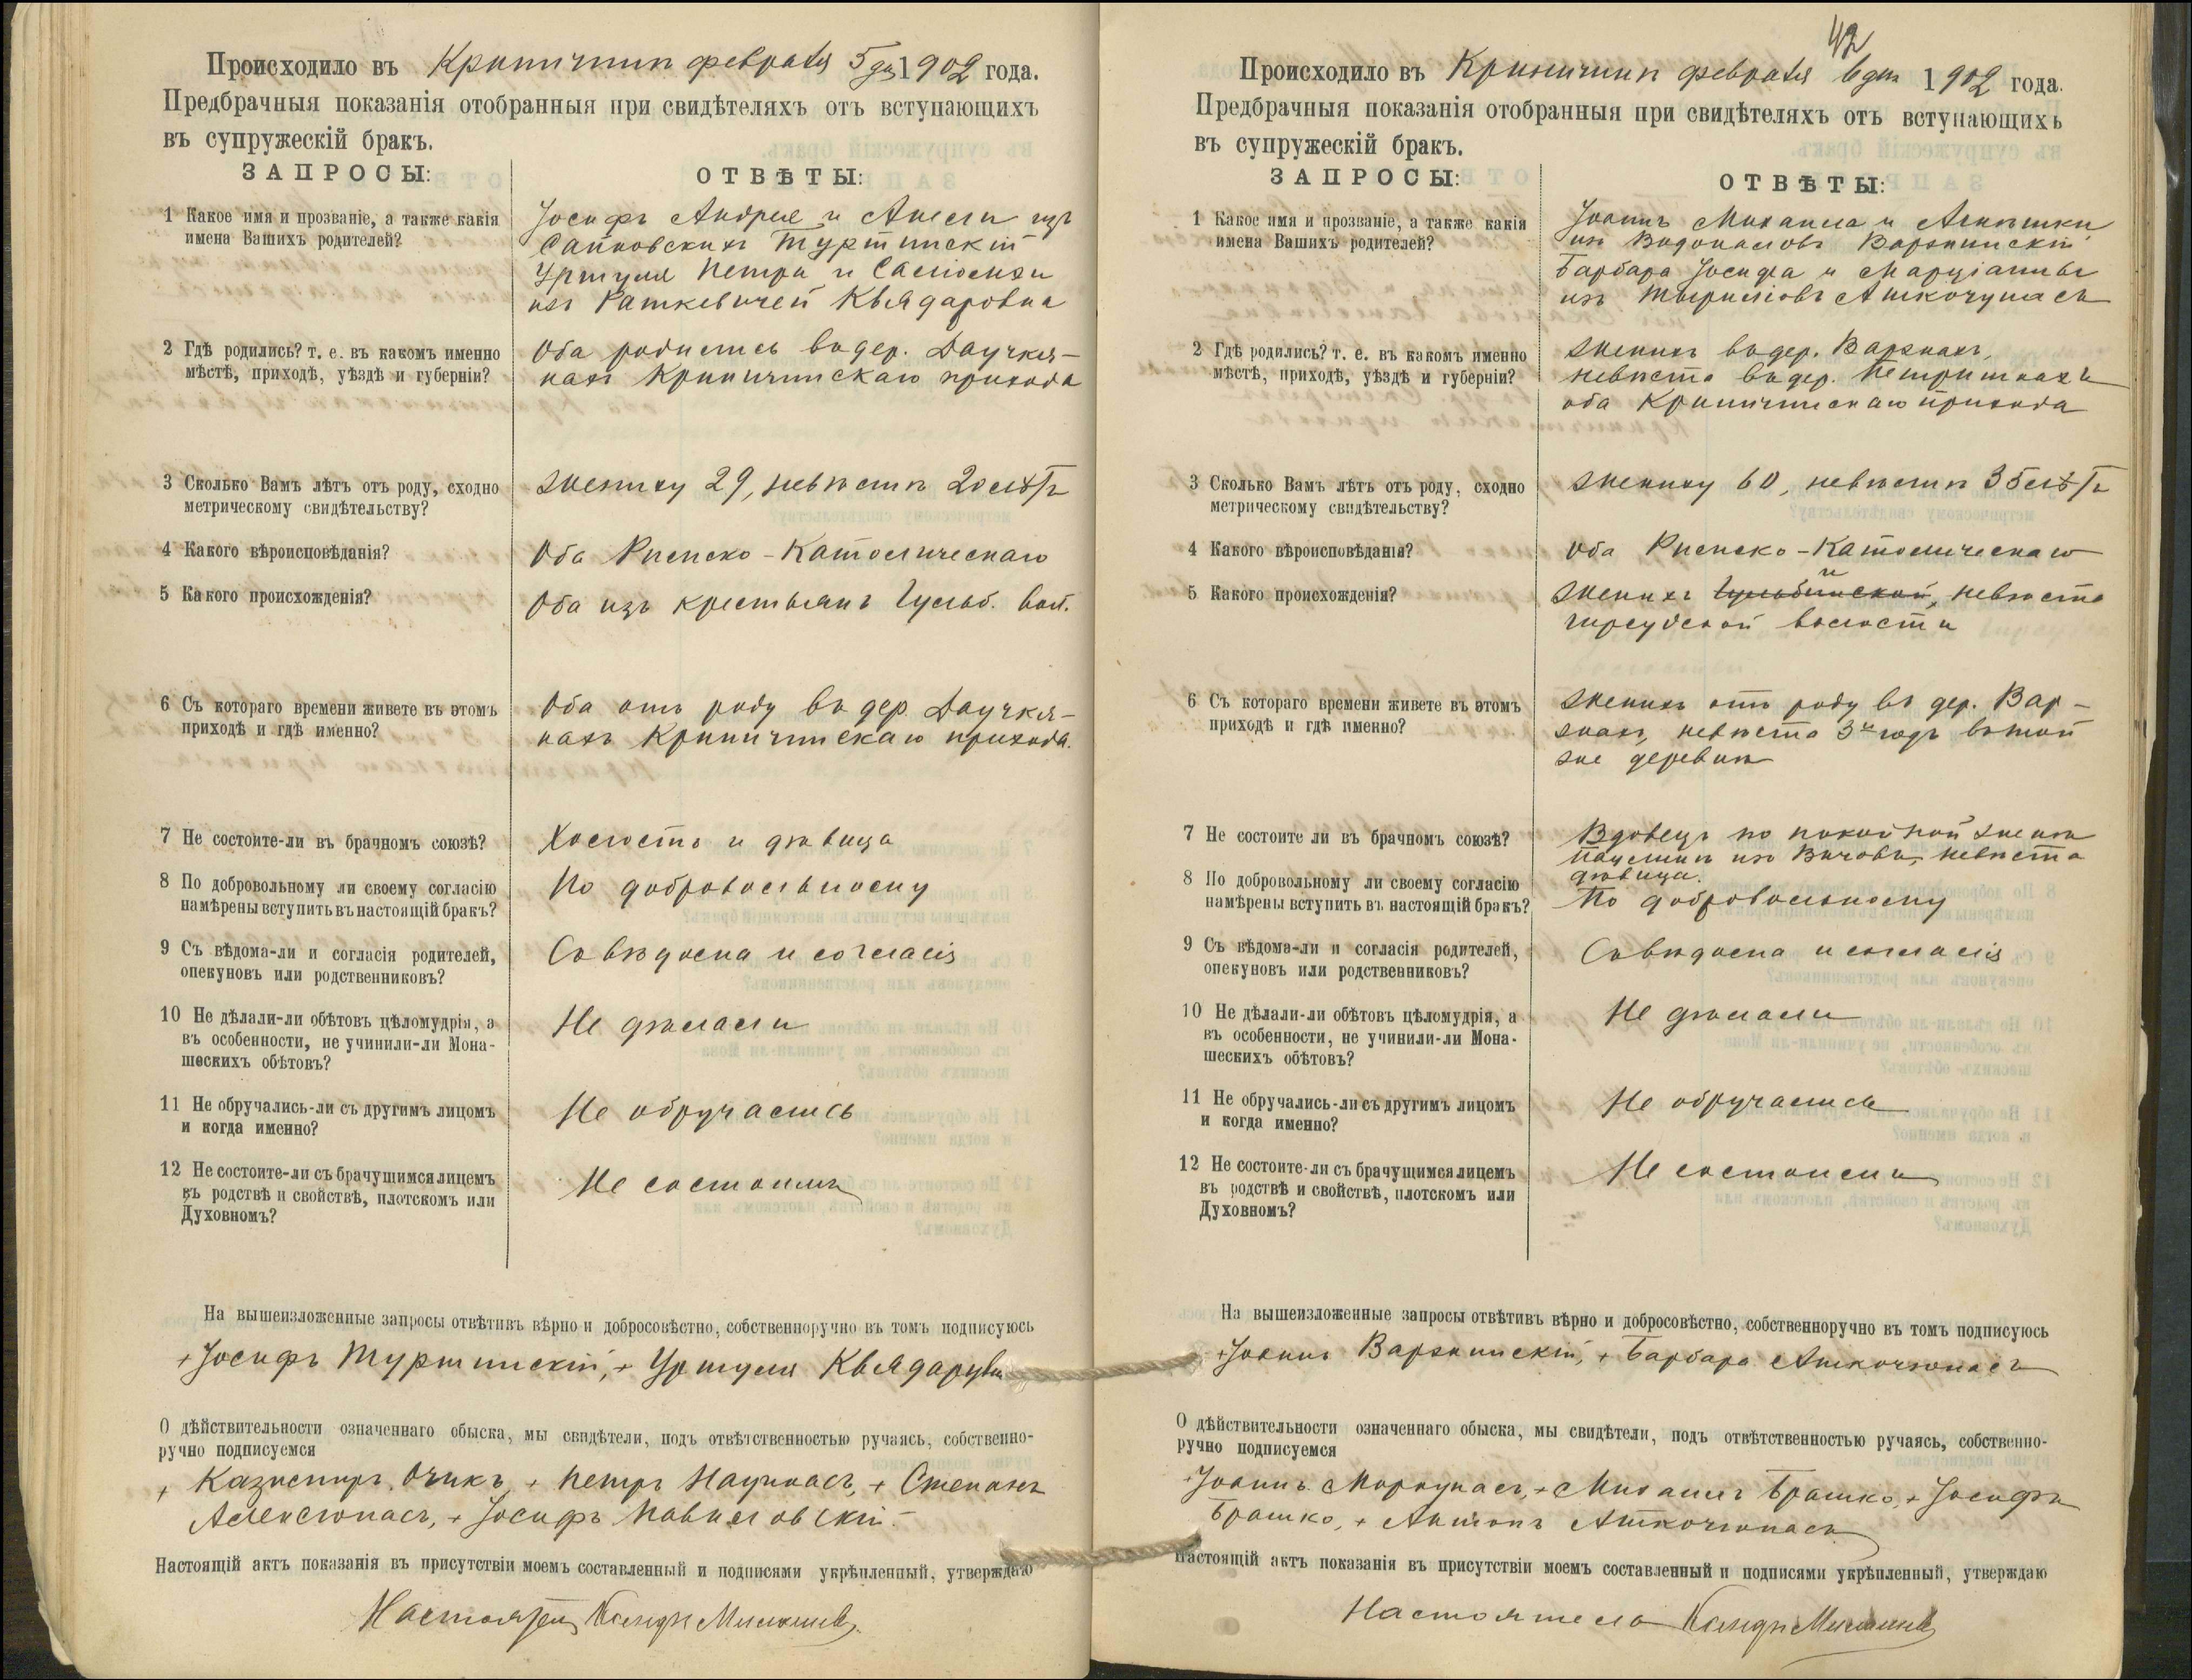 Происходило въ Криничинѣ февраля 5 дня 1902 года.
Предбрачныя показанія отобранныя при свидѣтеляхъ отъ вступающихъ
въ супружескій бракъ.
ЗАПРОСЫ:
ОТВѢТЫ:
1 Какое имя и прозваніе, а также какія
имена Вашихъ родителей?
Іосифъ Андрея и Анели изъ
Туртинскій
Уршуля Петра и Саломеи
изъ Раткевичей Квядаровна
2 Гдѣ родились? т. е. въ какомъ именно
мѣстѣ, приходѣ, уѣздѣ и губерніи?
Оба родились въ дер. Даучкя-
нахъ Криничинскаго прихода
3 Сколько Вамъ лѣтъ отъ роду, сходно
метрическому свидѣтельству?
Жениху 29, невѣстѣ 20 лѣтъ
4 Какого вѣроисповѣданія?
Оба Римско-Католическаго
5 Какого происхожденія?
Оба изъ крестьянъ Гульб. вол.
6 Съ котораго времени живете въ этомъ
приходѣ и гдѣ именно?
Оба отъ роду въ дер. Даучкя-
нахъ Криничинскаго прихода.
7 Не состоите-ли въ брачномъ союзѣ?
Холостъ и дѣвица
8 По добровольному ли своему согласію
намѣрены вступить въ настоящій бракъ?
По добровольному
9 Съ вѣдома-ли и согласія родителей,
опекуновъ или родственниковъ?
Съ вѣдома и согласія
10 Не дѣлали-ли обѣтовъ цѣломудрія, а
въ особенности, не учинили-ли Мона-
шескихъ обѣтовъ?
Не дѣлали
11 Не обручались-ли съ другимъ лицомъ
и когда именно?
Не обручались
12 Не состоите-ли съ брачущимся лицемъ
въ родствѣ и свойствѣ, плотскомъ или
Духовномъ?
Не состоимъ
На вышеизложенные запросы отвѣтивъ вѣрно и добросовѣстно, собственноручно въ томъ подписуюсь
+ Іосифъ Туртинскій, + Уршуля
О дѣйствительности означеннаго обыска, мы свидѣтели, подъ отвѣтственностью ручаясь, собственно-
ручно подписуемся
+ Казимиръ Очикъ, + Петръ Наунасъ, + Степанъ
Алексюнасъ, + Іосифъ Павиловскій.
Настоящій актъ показанія въ присутствіи моемъ составленный и подписями укрѣпленный, утверждаю
Настоятель
42
Происходило въ Криничинѣ февраля 6 дня 1902 года.
Предбрачныя показанія отобранныя при свидѣтеляхъ отъ вступающихъ
въ супружескій бракъ.
ЗАПРОСЫ:
ОТВѢТЫ:
1 Какое имя и прозваніе, а также какія
имена Вашихъ родителей?
Іоаннъ Михаила и
изъ Варзнинскій
Барбара Іосифа и Марціанны
изъ Аткочунасъ
2 Гдѣ родились? т. е. въ какомъ именно
мѣстѣ, приходѣ, уѣздѣ и губерніи?
Женихъ въ дер. Варзнахъ,
невѣста въ дер. Петришкахъ
оба Криничинскаго прихода
3 Сколько Вамъ лѣтъ отъ роду, сходно
метрическому свидѣтельству?
Жениху 60, невѣстѣ 35 лѣтъ
4 Какого вѣроисповѣданія?
Оба Римско-Католическаго
5 Какого происхожденія?
Женихъ и Гульбинской, невѣста
Гирсудской волости
6 Съ котораго времени живете въ этомъ
приходѣ и гдѣ именно?
Женихъ отъ роду въ дер. Вар-
знахъ, невѣста 3й годъ въ той
же деревнѣ
7 Не состоите ли въ брачномъ союзѣ?
Вдовецъ по покойной женѣ
Паулинѣ изъ невѣста
дѣвица.
8 По добровольному ли своему согласію
намѣрены вступить въ настоящій бракъ?
По добровольному
9 Съ вѣдома-ли и согласія родителей,
опекуновъ или родственниковъ?
Съ вѣдома и согласія
10 Не дѣлали-ли обѣтовъ цѣломудрія, а
въ особенности, не учинили-ли Мона-
шескихъ обѣтовъ?
Не дѣлали
11 Не обручались-ли съ другимъ лицомъ
и когда именно?
Не обручались
12 Не состоите-ли съ брачущимся лицемъ
въ родствѣ и свойствѣ, плотскомъ или
Духовномъ?
Не состоимъ
На вышеизложенные запросы отвѣтивъ вѣрно и добросовѣстно, собственноручно въ томъ подписуюсь
+ Іоаннъ Варзнинскій, + Барбара Аткочюнасъ
О дѣйствительности означеннаго обыска, мы свидѣтели, подъ отвѣтственностью ручаясь, собственно-
ручно подписуемся
+ Іоаннъ Моркунасъ, + Михаилъ Брашко, + Іосифъ
Брашко, + Антонъ Аткочюнасъ
Настоящій актъ показанія въ присутствіи моемъ составленный и подписями укрѣпленный, утверждаю
Настоятель